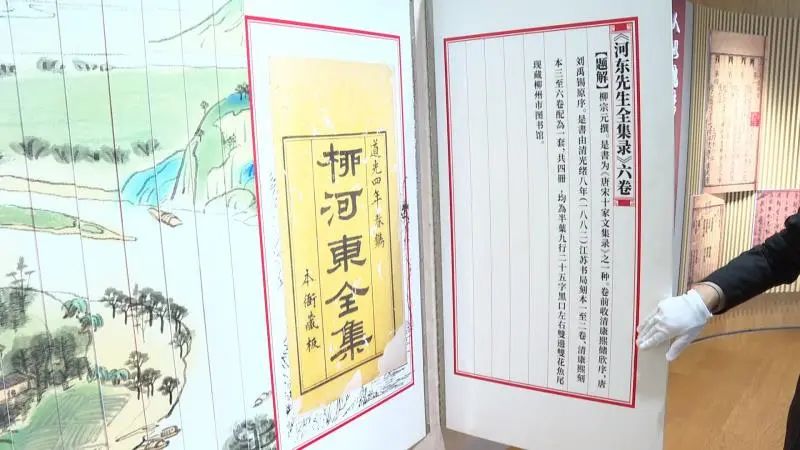 《河东先生全集录》六卷
【题解】柳宗元撰。是書为《唐宋十家文集录》之一种。卷前收清康熙储欣序，唐
刘禹锡原序。是書由清光绪八年（一八八二）江苏书局刻本一至二卷、清康熙刻
本三至六卷配為一套、共四冊，均為半葉九行二十五字黑口左右雙邊雙花魚尾
现藏柳州市图书馆。
道光四年春鐫
柳河東全集
本衙藏板